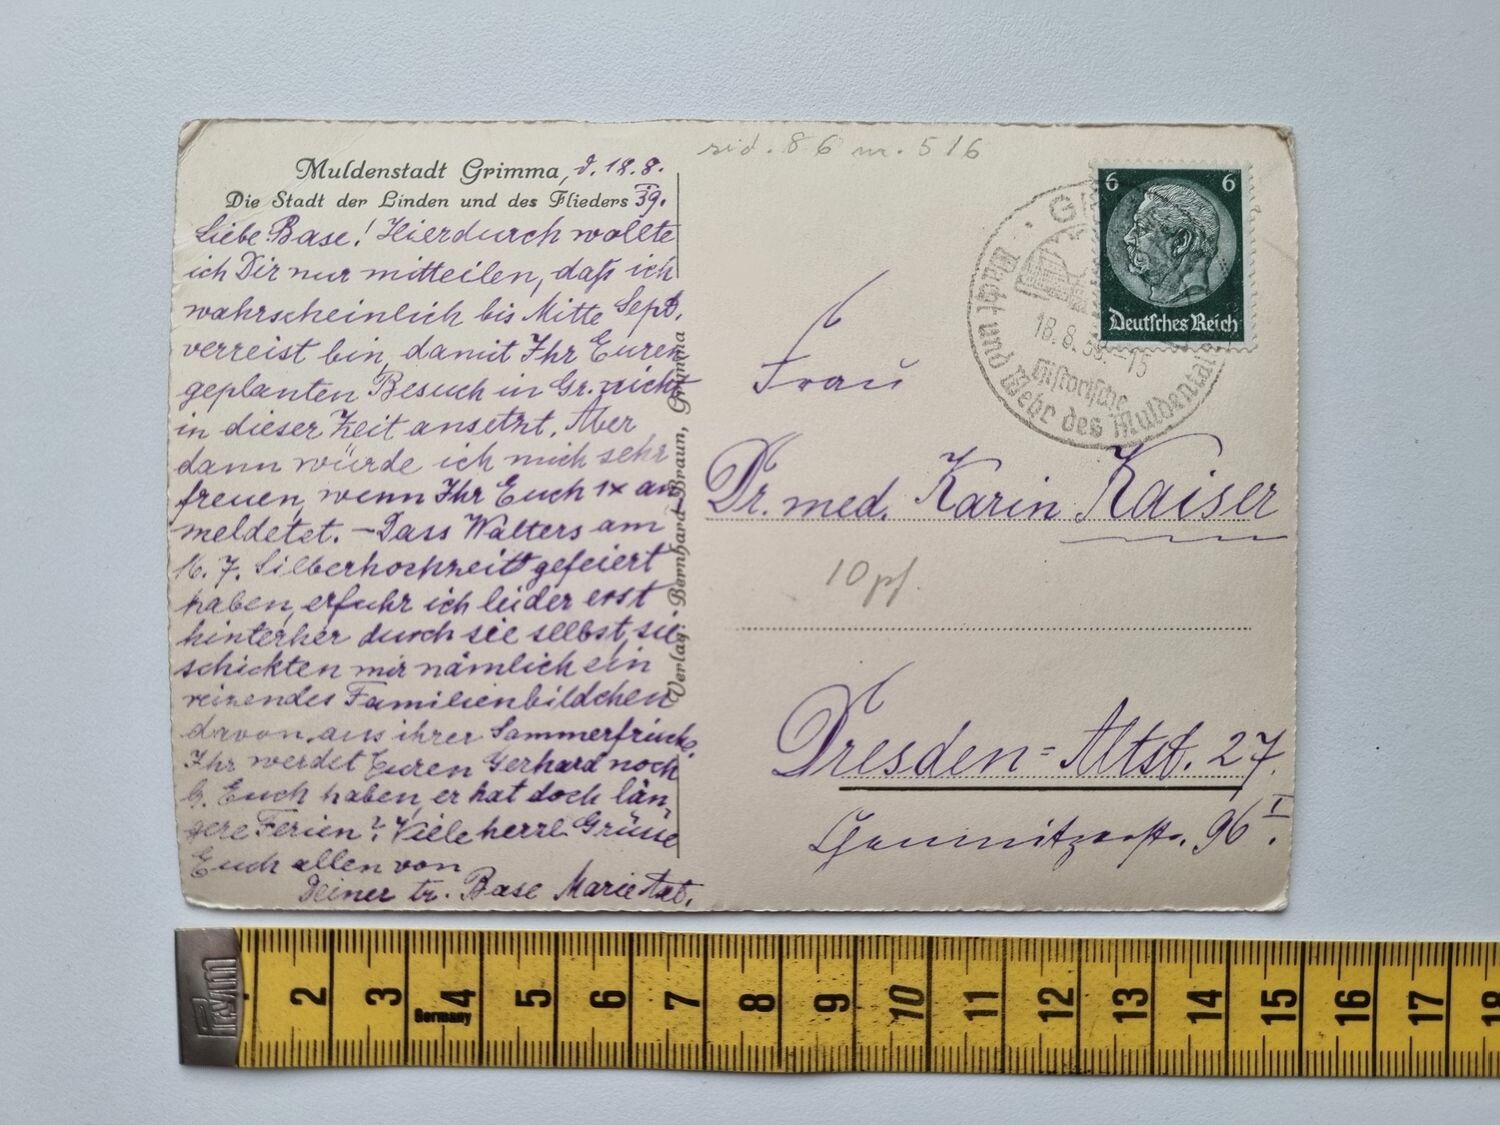 Muldenstadt Grimma, d. 18. 8.
Die Stadt der Linden und des Flieders 39.
Liebe Base! Hierdurch wollte
ich Dir nur mitteilen, daß ich
wahrscheinlich bis Mitte Sept.
verreist bin, damit Ihr Euren
geplanten Besuch in Gr. nicht
in dieser Zeit ansetzt. Aber
dann würde ich mich sehr
freuen, wenn Ihr Euch 1x an
meldetet. – Dass Walters am
16. 7. Silberhochzeit gefeiert
haben, erfuhr ich leider erst
hinterher durch sie selbst, sie
schickten mir nämlich ein
reizendes Familienbildchen
davon aus ihrer Sommerfrische.
Ihr werdet Euren Gerhard noch
b. Euch haben, er hat doch län
gere Ferien? Viele herzl. Grüsse
Euch allen von
Deiner tr. Base Marie
Verlag: Bernhard Braun, Grimma
rid. 86 nr. 516
6 6
Deutsches Reich
18. 8. 39.–15
Historische
Wacht und Wehr des Muldental
Frau
Dr. med. Karin Kaiser
10 pf.
Dresden = Altst. 27.
96 I.
Prym
2 3 4 5 6 7 8 9 10 11 12 13 14 15 16 17 18
Germany